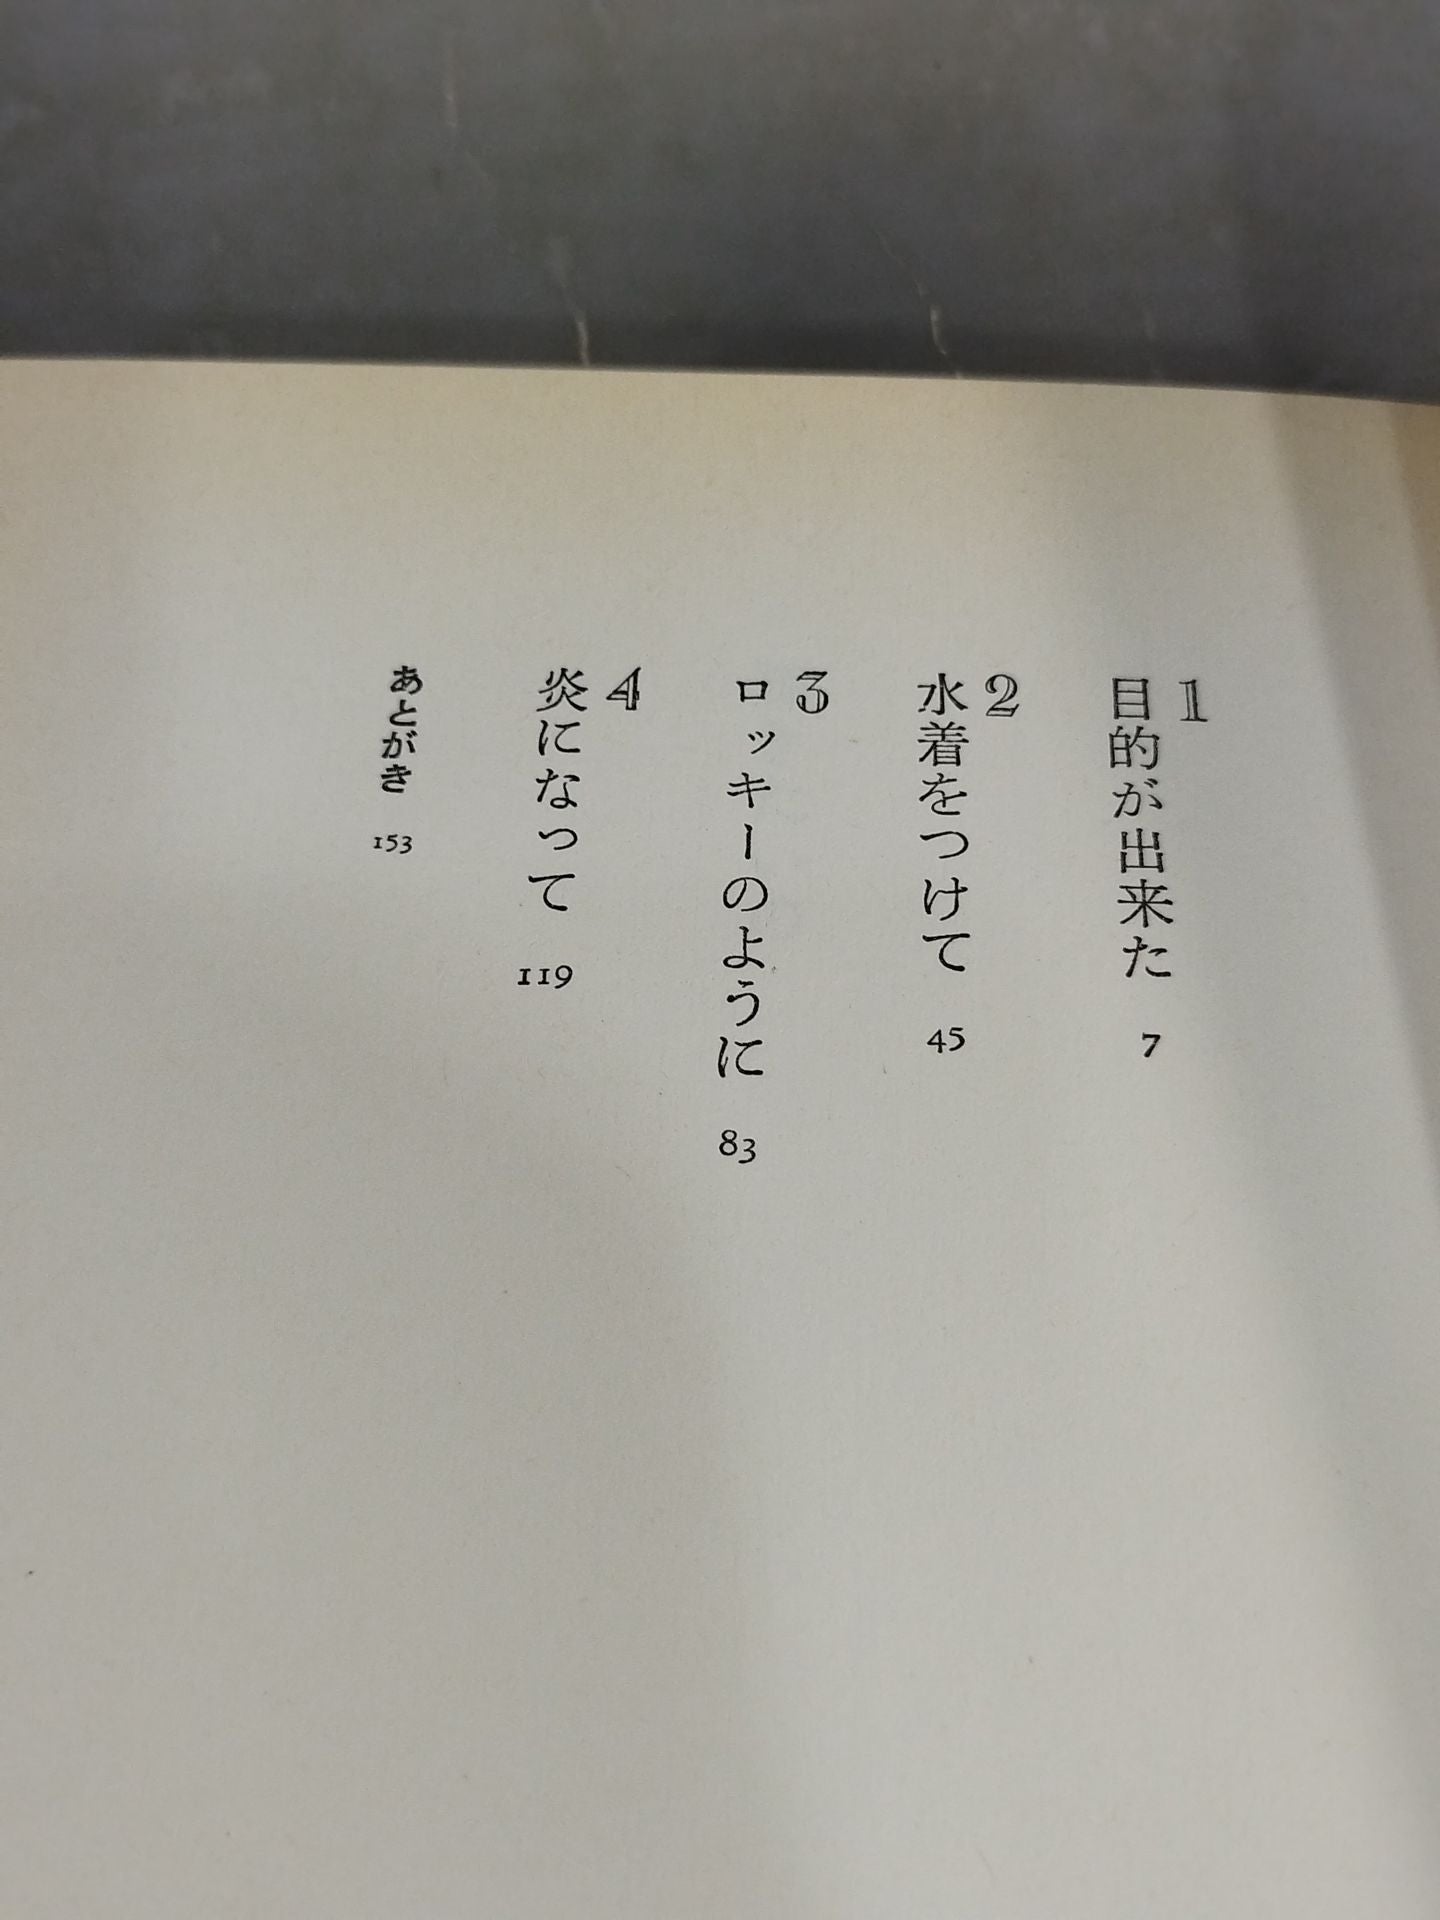 1
目的が出来た 7
2
水着をつけて 45
3
ロッキーのように 83
4
炎になって 119
あとがき 153